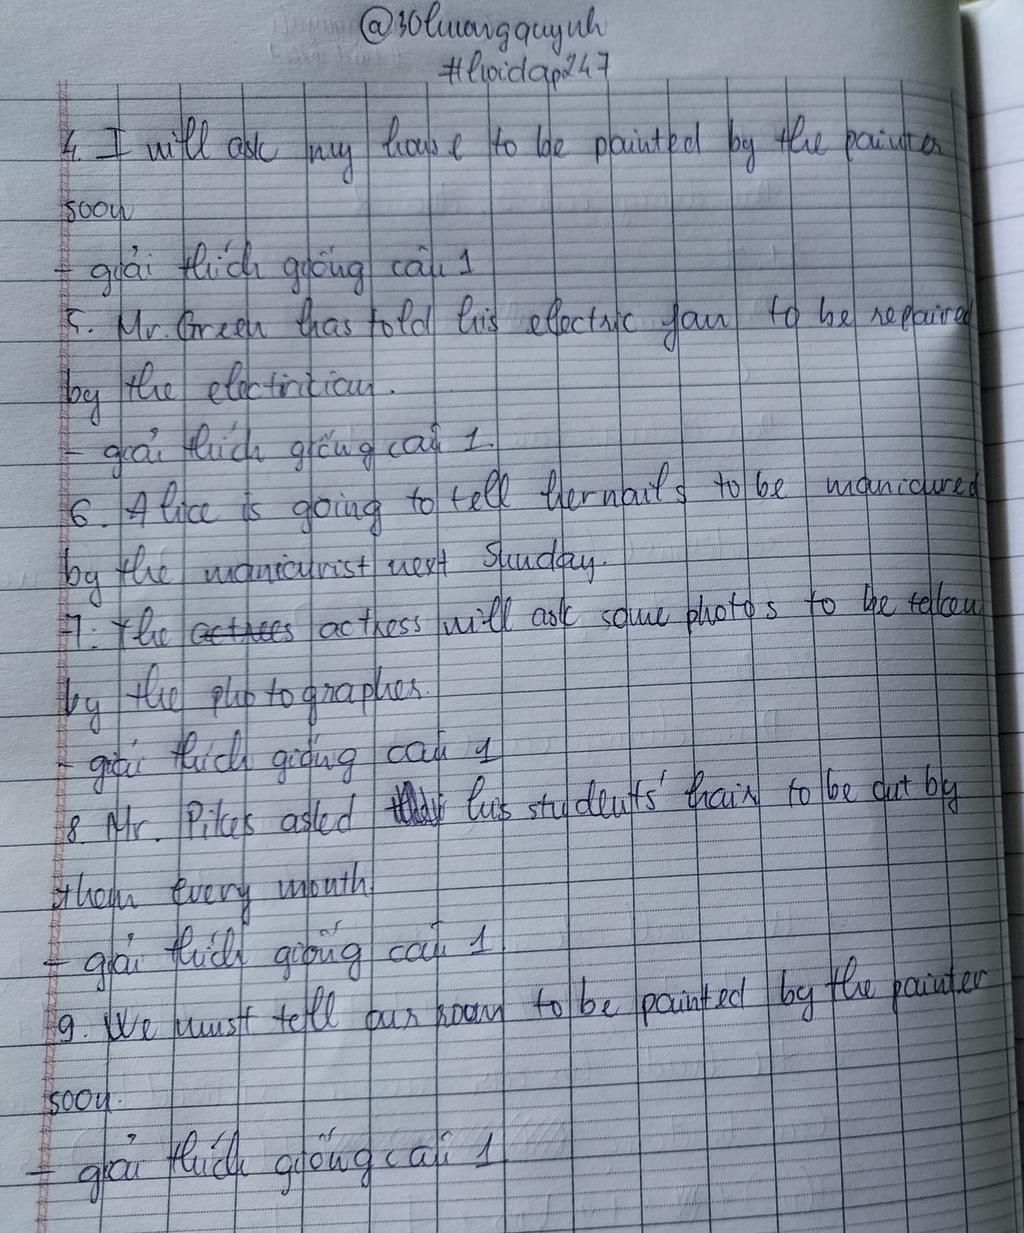 @30luongquynh
#hoidap247
4. I will ask my house to be painted by the painter
soon
- giải thích giống câu 1
5. Mr. Green has told his electric fan to be repaired
by the electricican.
- giải thích giống câu 1.
6. Alice is going to tell her nails to be manicured
by the manicurist next Sunday.
7. The actress will ask some photos to be taken
by the photographer.
- giải thích giống câu 1
8. Mr. Pikes asked his students' hair to be cut by
them every month
- giải thích giống câu 1
9. We must tell our room to be painted by the painter
soon.
- giải thích giống câu 1